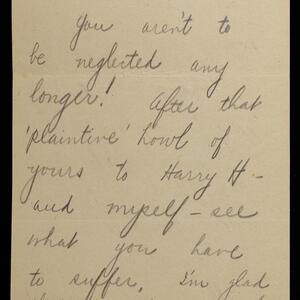 You aren't to
be neglected any
longer! After that
'plaintive' howl of
yours to Harry H –
and myself – see
what you have
to suffer. I'm glad